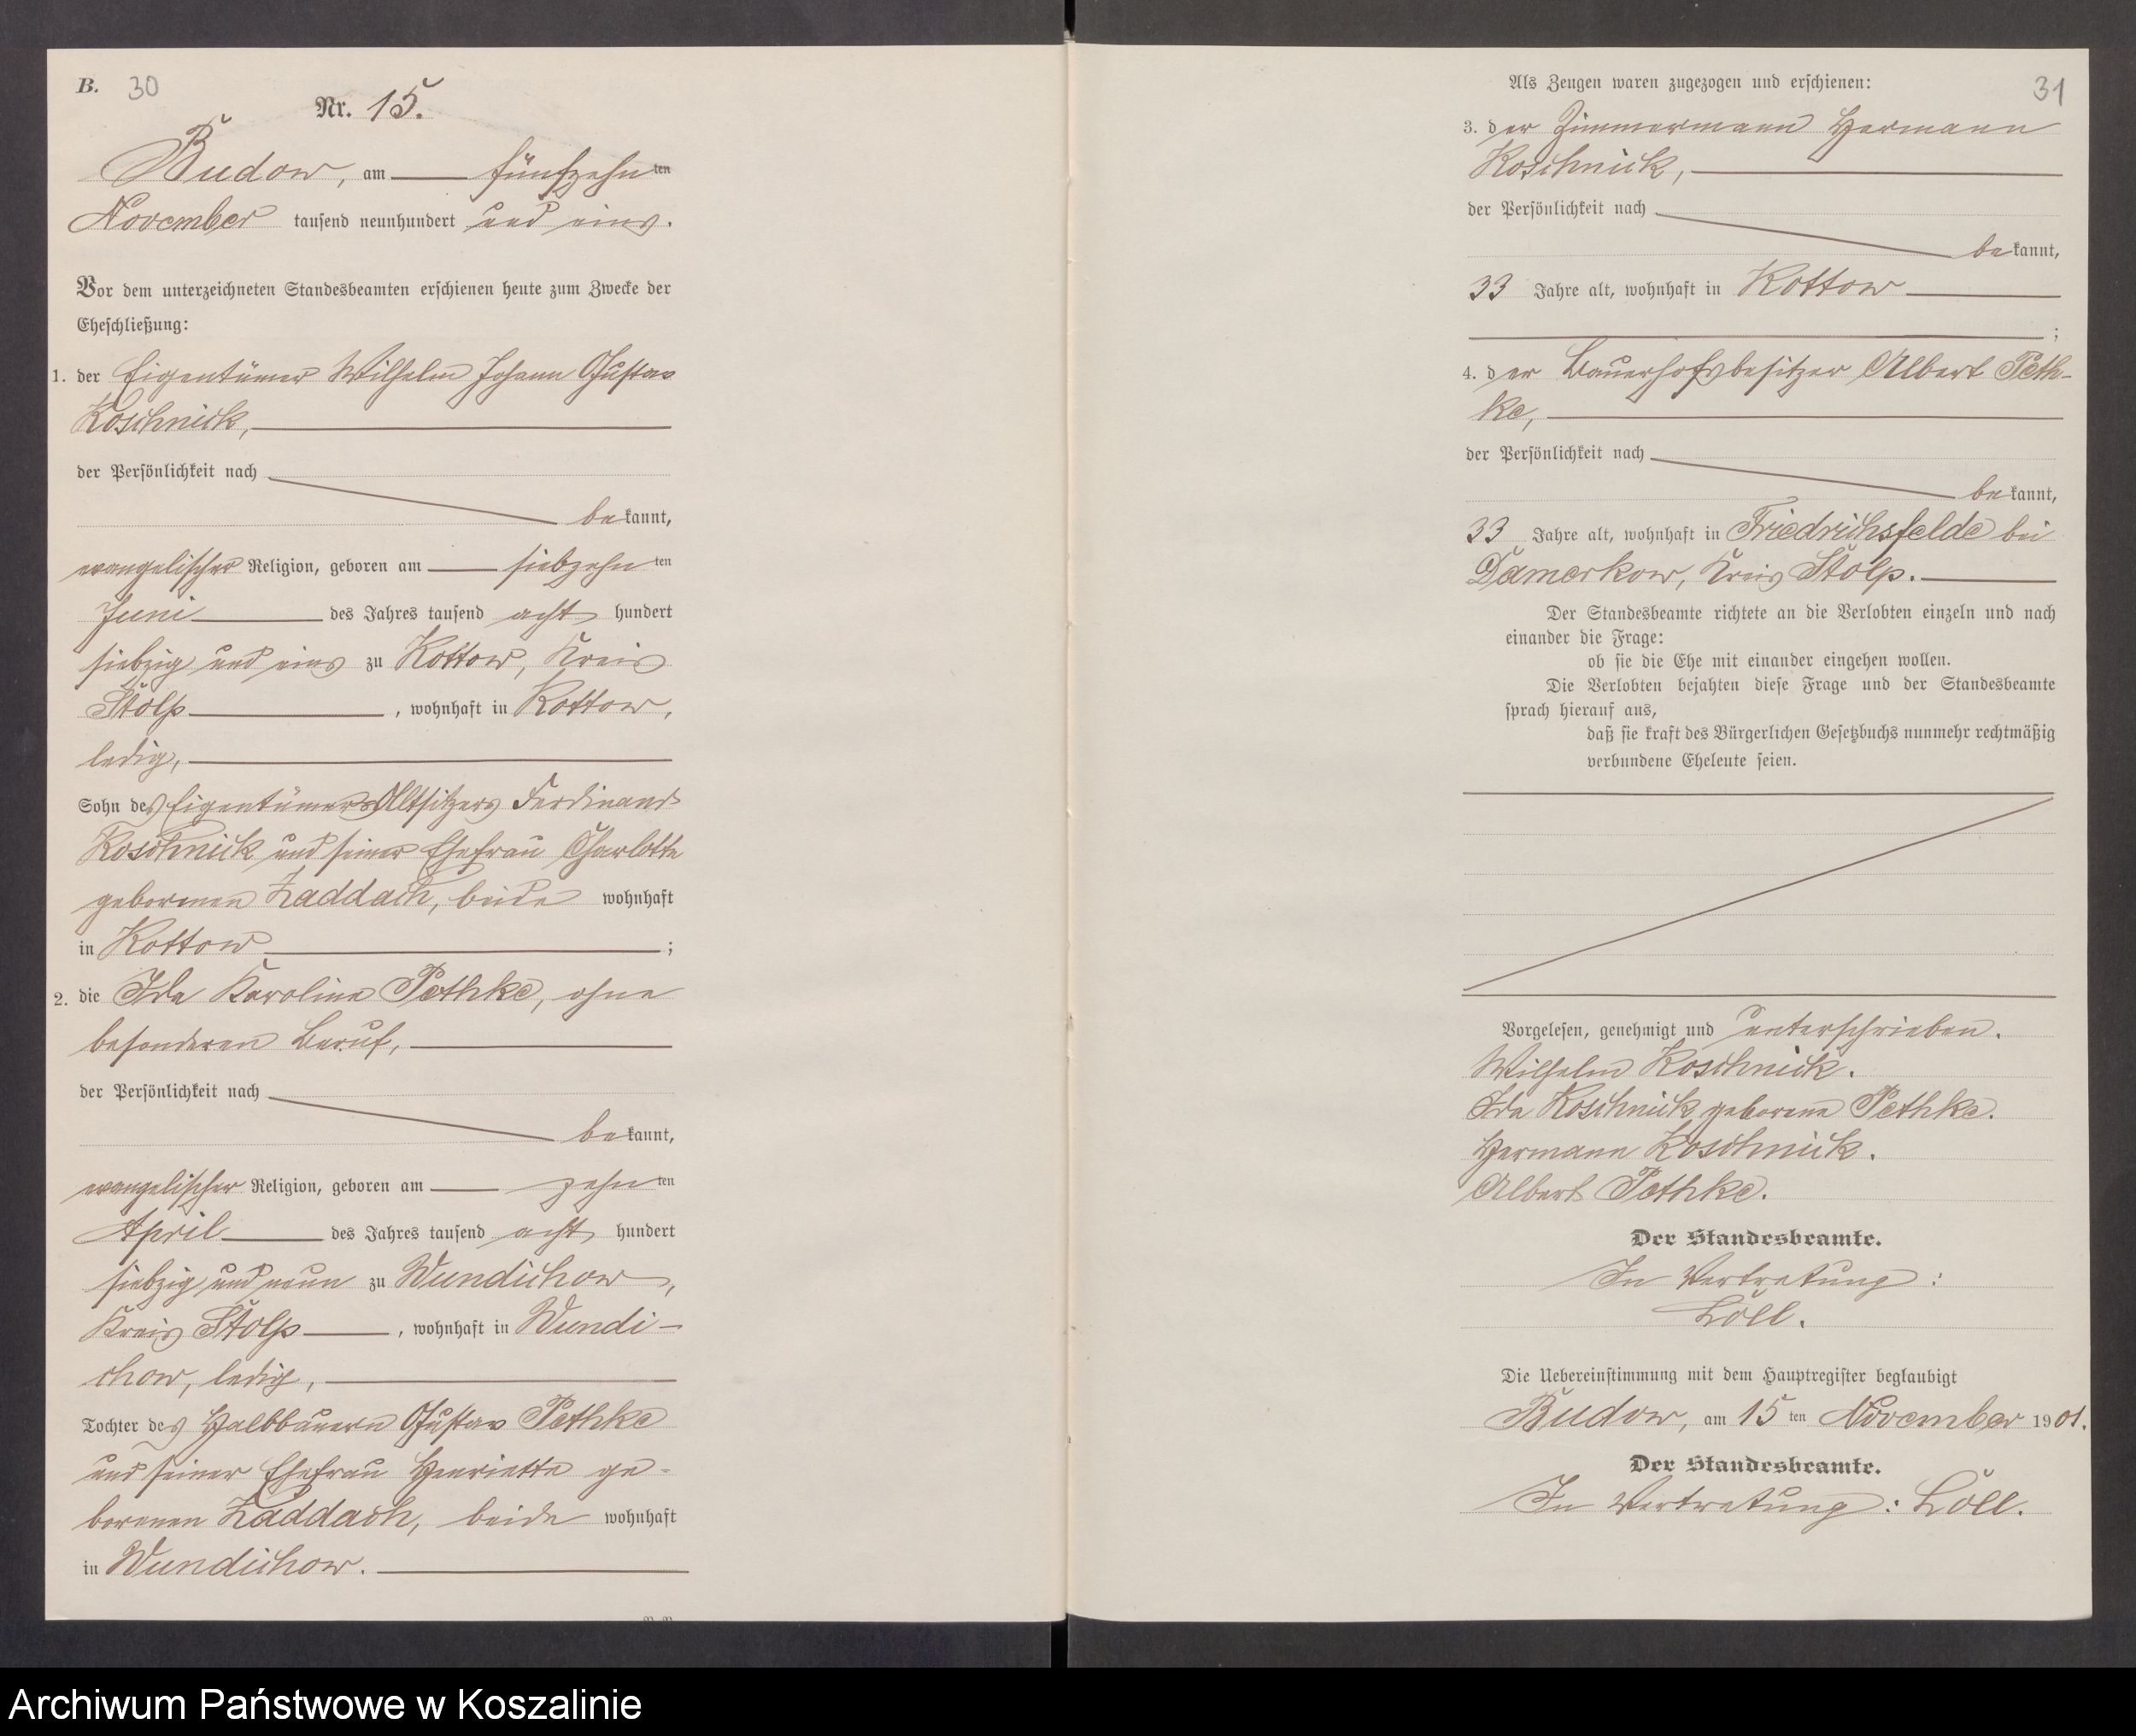 B. 30
Nr. 15.
Budow, am fünfzehn ten
November tausend neunhundert und eins.
Vor dem unterzeichneten Standesbeamten erschienen heute zum Zwecke der
Eheschließung:
1. der Eigentümer Wilhelm Johann Gustav
Koschnick,
der Persönlichkeit nach
be kannt,
evangelischer Religion, geboren am siebzehn ten
Juni des Jahres tausend acht hundert
siebzig und eins zu Kottow, Kreis
Stolp, wohnhaft in Kottow,
ledig,
Sohn des Eigentümers Altsitzers Ferdinand
Koschnick und seiner Ehefrau Charlotte
geborenen Zaddach, beide wohnhaft
in Kottow;
2. die Ida Karoline Pethke, ohne
besonderen Beruf,
der Persönlichkeit nach
be kannt,
evangelischer Religion, geboren am zehn ten
April des Jahres tausend acht hundert
siebzig und neun zu Wundichow,
Kreis Stolp, wohnhaft in Wundi-
chow, ledig,
Tochter des Halbbauern Gustav Pethke
und seiner Ehefrau Henriette ge-
borenen Zaddach, beide wohnhaft
in Wundichow.
31
Als Zeugen waren zugezogen und erschienen:
3. der Zimmermann Hermann
Koschnick,
der Persönlichkeit nach
be kannt,
33 Jahre alt, wohnhaft in Kottow
;
4. der Bauerhofsbesitzer Albert Peth-
ke,
der Persönlichkeit nach
be kannt,
33 Jahre alt, wohnhaft in Friedrichsfelde bei
Damerkow, Kreis Stolp.
Der Standesbeamte richtete an die Verlobten einzeln und nach
einander die Frage:
ob sie die Ehe mit einander eingehen wollen.
Die Verlobten bejahten diese Frage und der Standesbeamte
sprach hierauf aus,
daß sie kraft des Bürgerlichen Gesetzbuchs nunmehr rechtmäßig
verbundene Eheleute seien.
Vorgelesen, genehmigt und unterschrieben.
Wilhelm Koschnick.
Ida Koschnick geborene Pethke.
Hermann Koschnick.
Albert Pethke.
Der Standesbeamte.
In Vertretung:
Löll.
Die Uebereinstimmung mit dem Hauptregister beglaubigt
Budow, am 15 ten November 1901.
Der Standesbeamte.
In Vertretung: Löll.
Archiwum Państwowe w Koszalinie